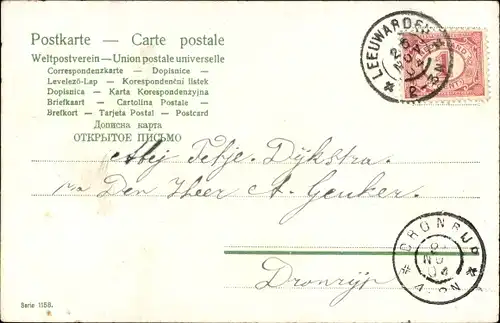 Postkarte — Carte postale
Weltpostverein — Union postale universelle
Correspondenzkarte — Dopisnice
Levelező-Lap — Korespondenční listek
Dopisnica — Karta Korespondenzyjna
Briefkaart — Cartolina Postale
Brefkort — Tarjeta Postal — Postcard
Дописна карта
ОТКРЫТОЕ ПИСЬМО
LEEUWARDEN
NOV
Mej Tetje Dijkstra.
Den Heer A. Geuker.
DRONRIJP
NOV
04
4-8N
Dronrijp
Serie 1158.